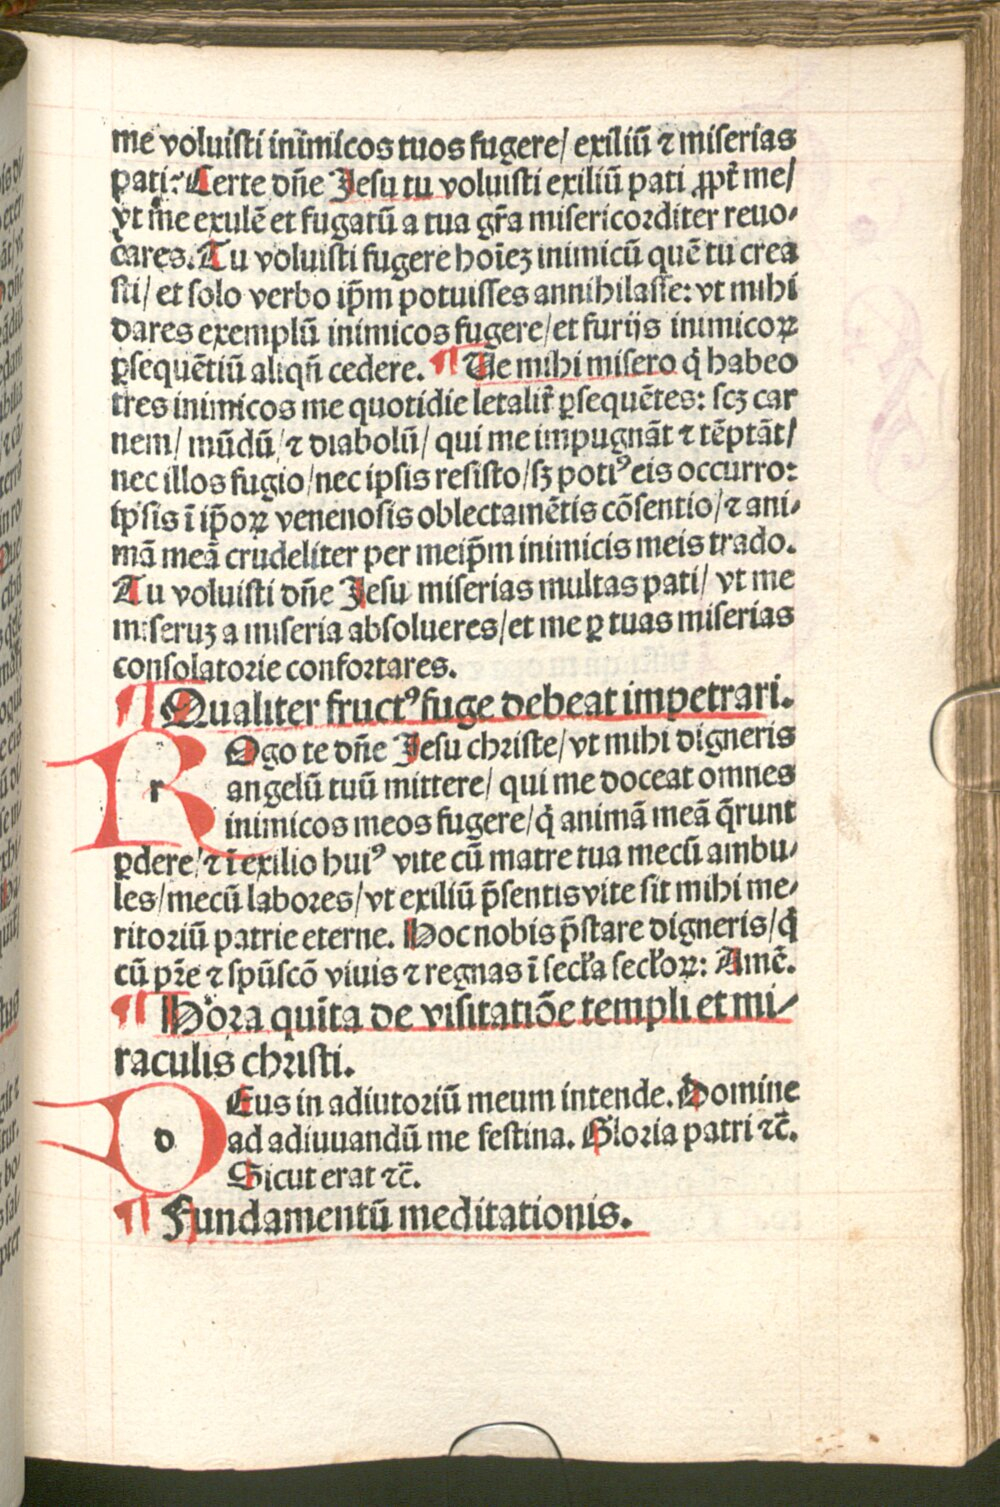 me voluisti inimicos tuos fugere/ exiliū ⁊ miserias
pati? Certe dn̄e Jesu tu voluisti exiliū pati ꝓpt̄ me/
vt me exulē et fugatū a tua gr̄a misericorditer reuo⸗
cares. Tu voluisti fugere hoīeꝫ inimicū quē tu crea
sti/ et solo verbo ip̄m potuisses annihilasse: vt mihi
dares exemplū inimicos fugere/ et furijs inimicoꝝ
ꝑsequētiū aliqn̄ cedere. ¶ Ve mihi misero q̇ habeo
tres inimicos me quotidie letalit̄ ꝑsequētes: scꝫ car
nem/ mūdū/ ⁊ diabolū/ qui me impugnāt ⁊ tēptāt/
nec illos fugio/ nec ipsis resisto/ sꝫ potiꝰ eis occurro:
ipsis ī ip̄oꝝ venenosis oblectamētis cōsentio/ ⁊ ani⸗
mā meā crudeliter per meip̄m inimicis meis trado.
Tu voluisti dn̄e Jesu miserias multas pati/ vt me
miseruꝫ a miseria absolueres/ et me ꝑ tuas miserias
consolatorie confortares.
¶ Qualiter fructꝰ fuge debeat impetrari.
r Ogo te dn̄e Jesu christe/ vt mihi digneris
angelū tuū mittere/ qui me doceat omnes
inimicos meos fugere/ q̇ animā meā q̄runt
ꝑdere/ ⁊ ī exilio huiꝰ vite cū matre tua mecū ambu⸗
les/ mecū labores/ vt exiliū p̄sentis vite sit mihi me⸗
ritoriū patrie eterne. Hoc nobis p̄stare digneris/ q̇
cū pr̄e ⁊ spūscō viuis ⁊ regnas ī secl̄a secl̄oꝝ: Amē.
¶ Hora quīta de visitatiōe templi et mi⸗
raculis christi.
d Eus in adiutoriū meum intende. Domine
ad adiuuandū me festina. Gloria patri ⁊c̄.
Sicut erat ⁊c̄.
¶ Fundamentū meditationis.